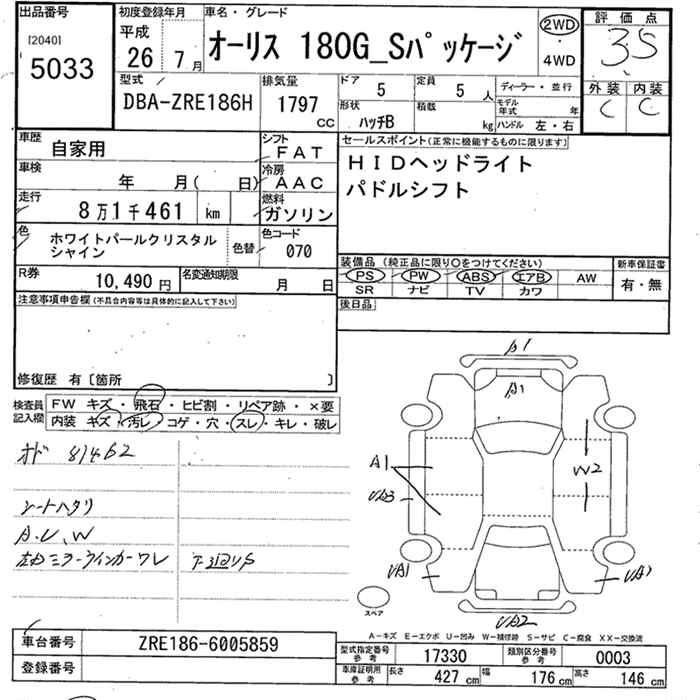 出品番号
[2040]
5033
初度登録年月
平成
26 7月
車名・グレード
オーリス 180G_Sパッケージ
2WD
・
4WD
評価点
3.5
外装 内装
C C
型式
DBA-ZRE186H
排気量
1797
cc
ドア 5
定員 5 人
ディーラー・並行
形状 ハッチB
積載 kg
モデル年式 年
ハンドル 左・右
車歴
自家用
シフト
FAT
セールスポイント(正常に機能するものに限ります)
HIDヘッドライト
パドルシフト
車検
年 月( 日)
冷房
AAC
走行
8万1千461 km
燃料
ガソリン
色
ホワイトパールクリスタル
シャイン
色替
色コード
070
装備品(純正品に限り○をつけてください)
新車保証書
PS PW ABS エアB AW
SR ナビ TV カワ
有・無
R券
10,490 円
名変通知期限
月 日
後日品
注意事項申告欄(不具合内容等は具体的に記入して下さい)
修復歴 有〔箇所 〕
検査員
記入欄
FW キズ・飛石・ヒビ割・リペア跡・×要
内装 キズ・汚レ・コゲ・穴・スレ・キレ・破レ
オド 81462
シートヘタリ
A.U.W
左右ミラーウインカーワレ
A1
A1
A1
W2
UA1
UA2
スペア
A-キズ E-エクボ U-凹み W-補修跡 S-サビ C-腐食 XX-交換済
車台番号
ZRE186-6005859
登録番号
型式指定番号
参考
17330
類別区分番号
参考
0003
車庫証明用
参考
長さ 427 cm
幅 176 cm
高さ 146 cm